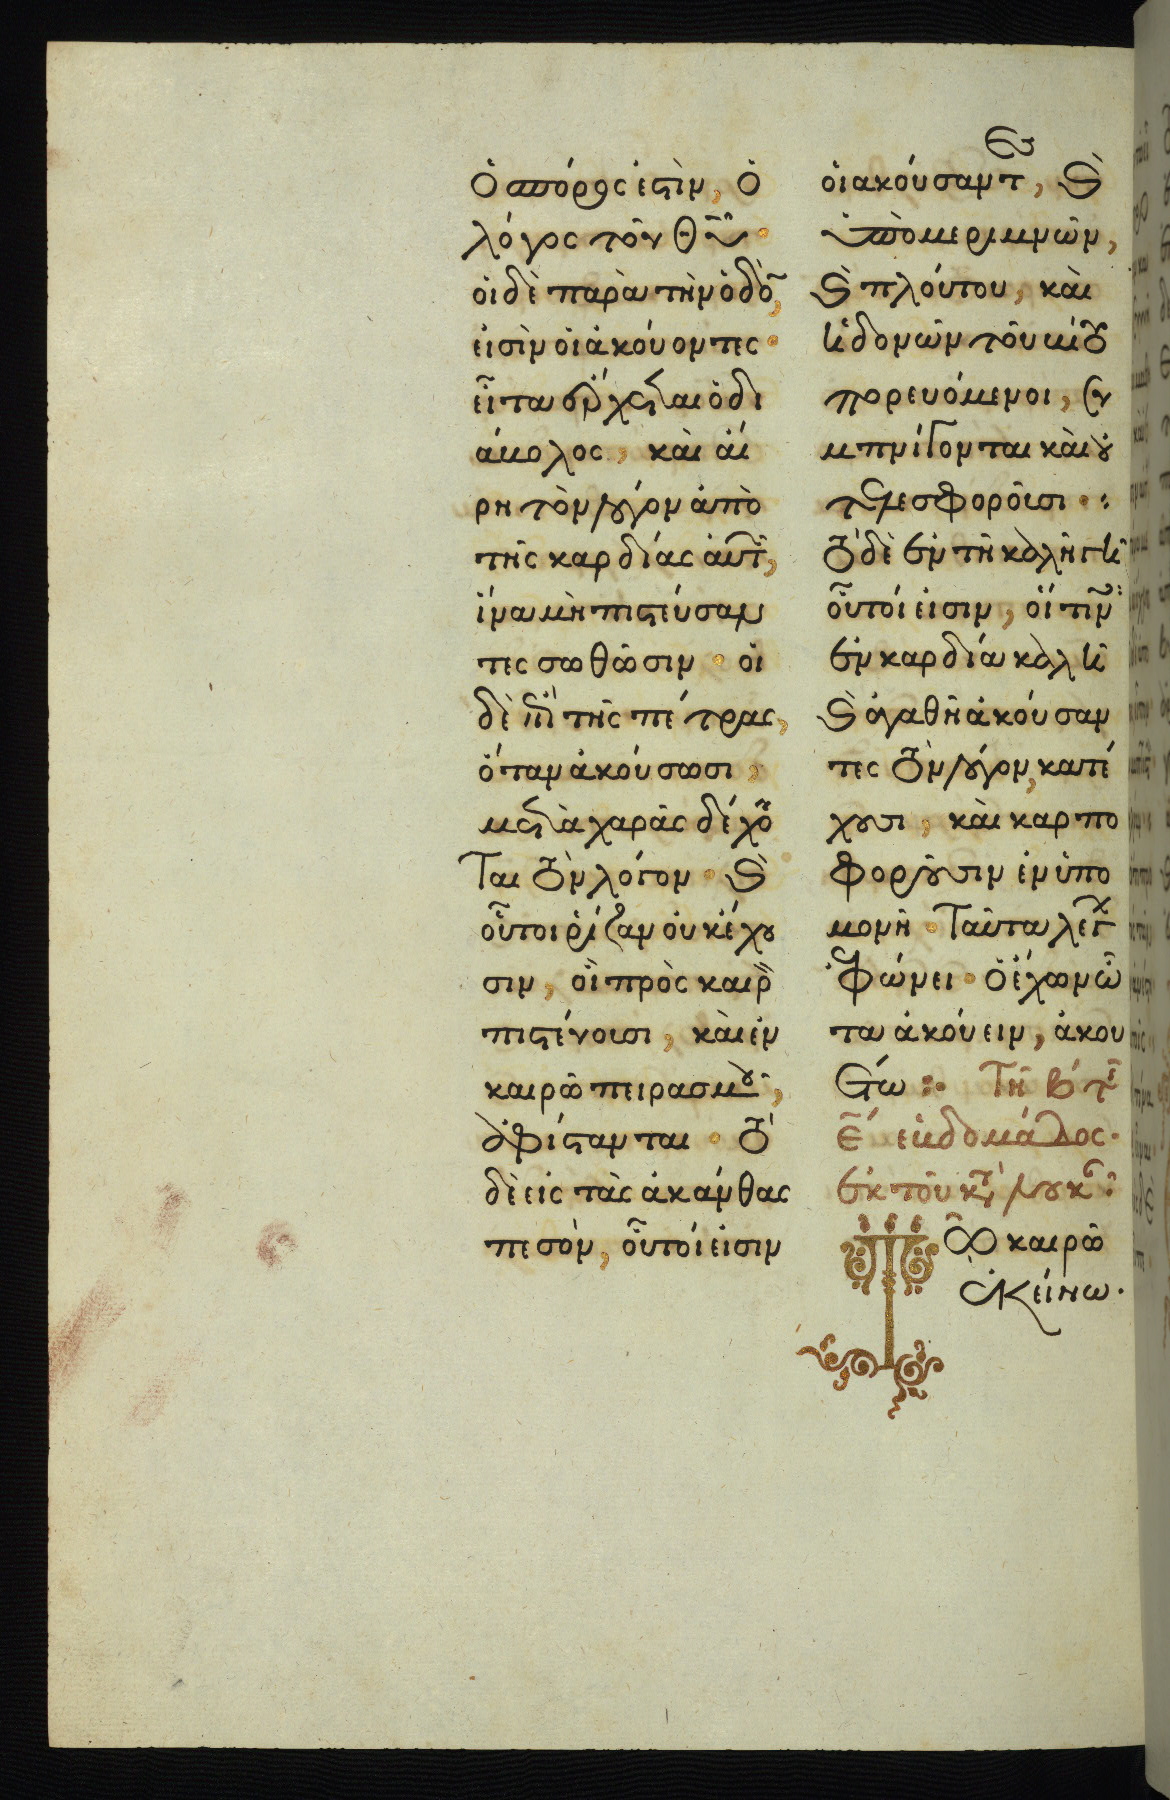 ὁ σπόρος ἐστὶν, ὁ
λόγος τοῦ θῦ·
οἱ δὲ παρὰ τὴν ὁδὸ,
εἰσὶν οἱ ἀκούοντες·
εἶτα ἔρχεται ὁ δι
άβολος, καὶ αἴ
ρη τὸν λόγον ἀπὸ
τῆς καρδίας αὐτ,
ἵνα μὴ πιστεύσαν
τες σωθῶσιν· οἱ
δὲ ἐπὶ τῆς πέτρας,
ὅταν ἀκούσωσι,
μετὰ χαρᾶς δέχο
ται τὸν λόγον· καὶ
οὗτοι ῥίζαν οὐκ ἔχου
σιν, οἳ πρὸς καιρ
πιστεύουσι, καὶ ἐν
καιρῶ πειρασμοῦ,
ἀφίστανται· τὸ
δὲ εἰς τὰς ἀκάνθας
πεσὸν, οὗτοί εἰσιν
οἱ ἀκούσαντες, καὶ
ὑπὸ μεριμνῶν,
καὶ πλούτου, καὶ
ἡδονῶν τοῦ βίου
πορευόμενοι, συ
μπνίγονται καὶ οὐ
τελεσφοροῦσι·:
τὸ δὲ ἐν τῆ καλῆ γῆ
οὗτοί εἰσιν, οἵτιν
ἐν καρδία καλῆ
καὶ ἀγαθῆ ἀκούσαν
τες τὸν λόγον, κατέ
χουσι, καὶ καρπο
φοροῦσιν ἐν ὑπο
μονῆ· Ταῦτα λέγ
ἐφώνει· ὁ ἔχων ὦ
τα ἀκούειν, ἀκου
έτω :· Τῆ β τ
ε ἑβδομάδος·
ἐκ τοῦ κτ λουκ:
Τῶ καιρῶ
ἐκείνω·